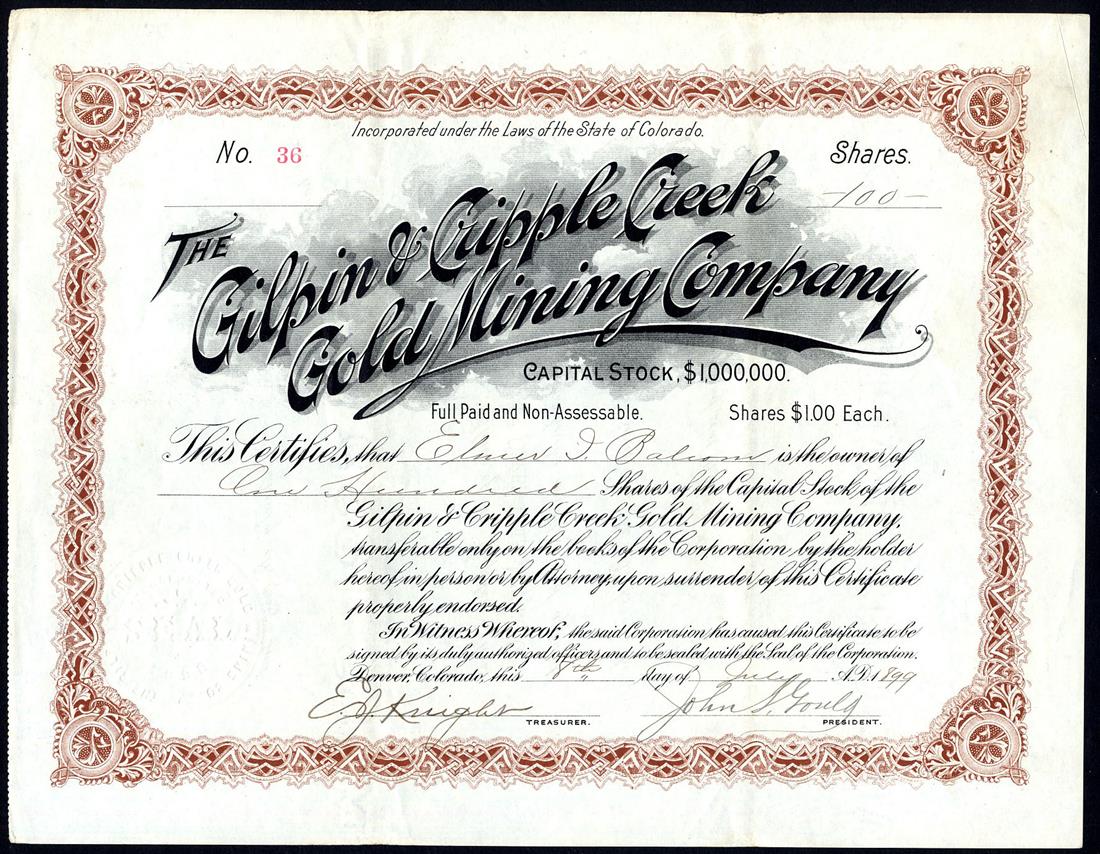 Incorporated under the Laws of the State of Colorado.
No. 36
Shares.
-100-
THE
Gilpin & Cripple Creek
Gold Mining Company
CAPITAL STOCK, $1,000,000.
Full Paid and Non-Assessable. Shares $1.00 Each.
This Certifies, that Elmer I Balcom is the owner of
One Hundred Shares of the Capital Stock of the
Gilpin & Cripple Creek Gold Mining Company,
transferable only on the books of the Corporation by the holder
hereof in person or by Attorney, upon surrender of this Certificate
properly endorsed.
In Witness Whereof, the said Corporation has caused this Certificate to be
signed by its duly authorized officers and to be sealed with the Seal of the Corporation.
Denver, Colorado, this 8th day of July A.D. 1899
E. J. Knight TREASURER. John S. Gould PRESIDENT.